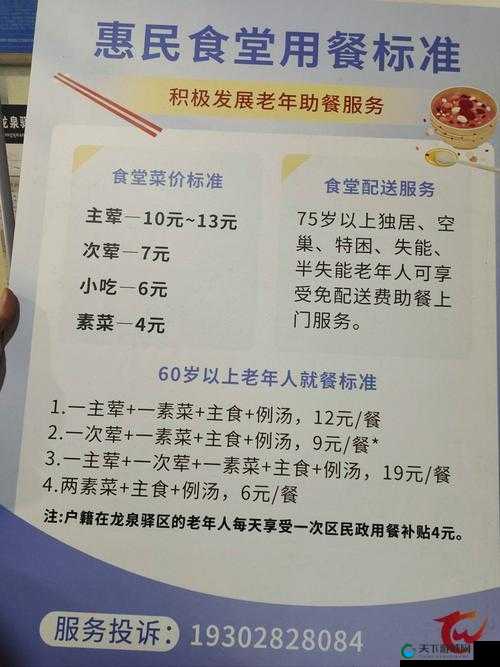 惠民食堂用餐标准
积极发展老年助餐服务
食堂菜价标准
主荤—10元~13元
次荤—7元
小吃—6元
素菜—4元
食堂配送服务
75岁以上独居、空
巢、特困、失能、
半失能老年人可享
受免配送费助餐上
门服务。
60岁以上老年人就餐标准
1.一主荤+一素菜+主食+例汤，12元/餐
2.一次荤+一素菜+主食+例汤，9元/餐*
3.一主荤+一次荤+一素菜+主食+例汤，19元/餐
4.两素菜+主食+例汤，6元/餐
注:户籍在龙泉驿区的老年人每天享受一次区民政用餐补贴4元。
服务投诉：19302828084
龙泉驿